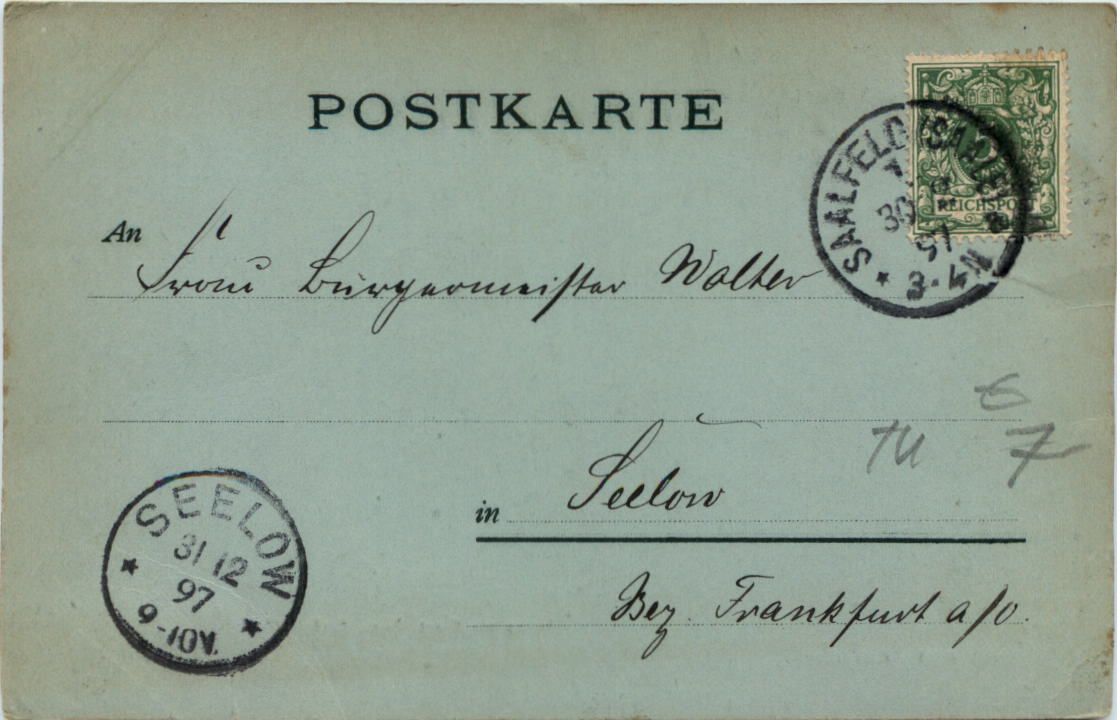 POSTKARTE
SAALFELD (SAALE)
30
97
3-4N
5
REICHSPOST
An
Frau Bürgermeister Walter
in Seelow
Bez. Frankfurt a/O.
SEELOW
31 12
97
9-10V.
TH
6
7